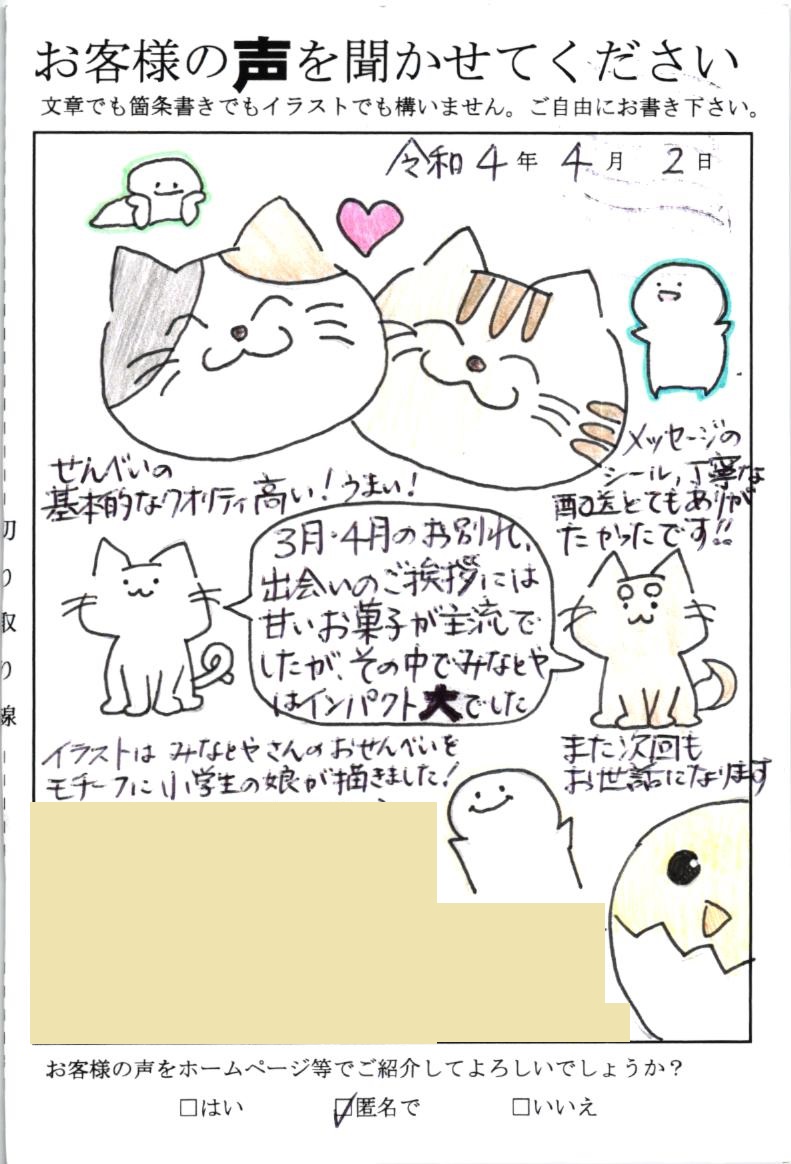 お客様の声を聞かせてください
文章でも箇条書きでもイラストでも構いません。ご自由にお書き下さい。
令和4年 4月 2日
せんべいの
基本的なクオリティ高い!うまい!
メッセージの
シール,丁寧な
配送とてもありが
たかったです!!
3月・4月のお別れ、
出会いのご挨拶には
甘いお菓子が主流で
したが、その中でみなとや
はインパクト大でした
イラストは みなとやさんのおせんべいを
モチーフに小学生の娘が描きました!
また次回も
お世話になります
切り取り線
お客様の声をホームページ等でご紹介してよろしいでしょうか?
□はい ☑匿名で □いいえ